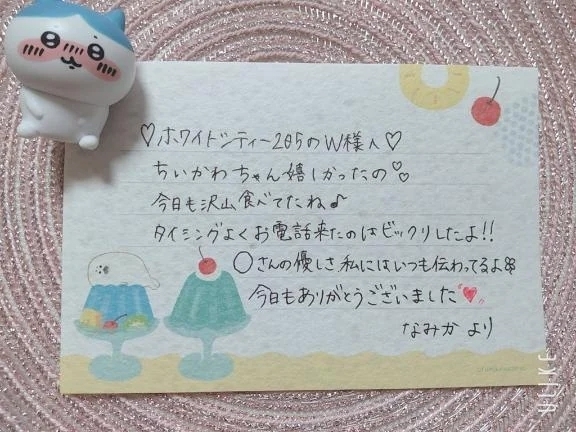 ♡ホワイトシティー205のW様へ♡
ちいかわちゃん嬉しかったの♡♡
今日も沢山食べてたね♪
タイミングよくお電話来たのはビックリしたよ!!
〇さんの優しさ私にはいつも伝わってるよ
今日もありがとうございました♥
なみか より
ULIKE